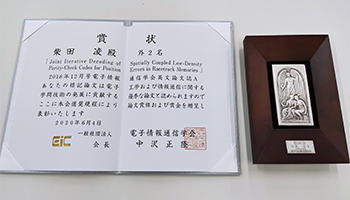 賞状
柴田 凌殿 外2名
「Joint Iterative Decoding of Spatially Coupled Low-Density
Parity-Check Codes for Position Errors in Racetrack Memories」
2018年12月号電子情報通信学会英文論文誌A
あなたの標記論文は電子工学および情報通信に関する
学問技術の発展に貢献する優秀な論文と認められますので
ここに本会選奨規程により論文賞牌および賞金を贈呈し
表彰いたします
2020年6月4日
一般社団法人 電子情報通信学会
会長 中沢正隆